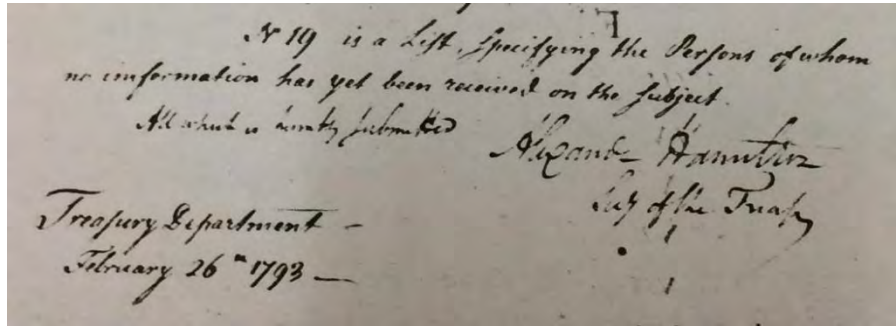 Nº 19 is a List, Specifying the Persons of whom
no imformation has yet been received on the Subject.
All which is humbly submitted
Alexander Hamilton
Secy of the Treasy
Treasury Department —
February 26th 1793 —